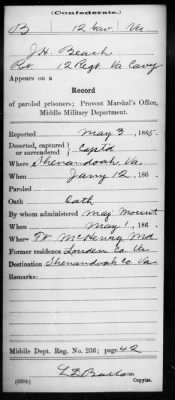 (Confederate.)
B 12 Cav. Va.
J.H. Beach
Pvt 12 Regt. Va Cavy
Appears on a
Record
of paroled prisoners; Provost Marshal's Office,
Middle Military Department.
Reported May 3, 1865.
Deserted, captured or surrendered Captd
Where Shenandoah, Va.
When Jany 12, 186 .
Paroled
Oath Oath
By whom administered Maj. Mount
When May 1, 186 .
Where Ft. McHenry Md
Former residence Louden Co Va
Destination Shenandoah Co Va.
Remarks:
Middle Dept. Reg. No. 236; page 42
Copyist.